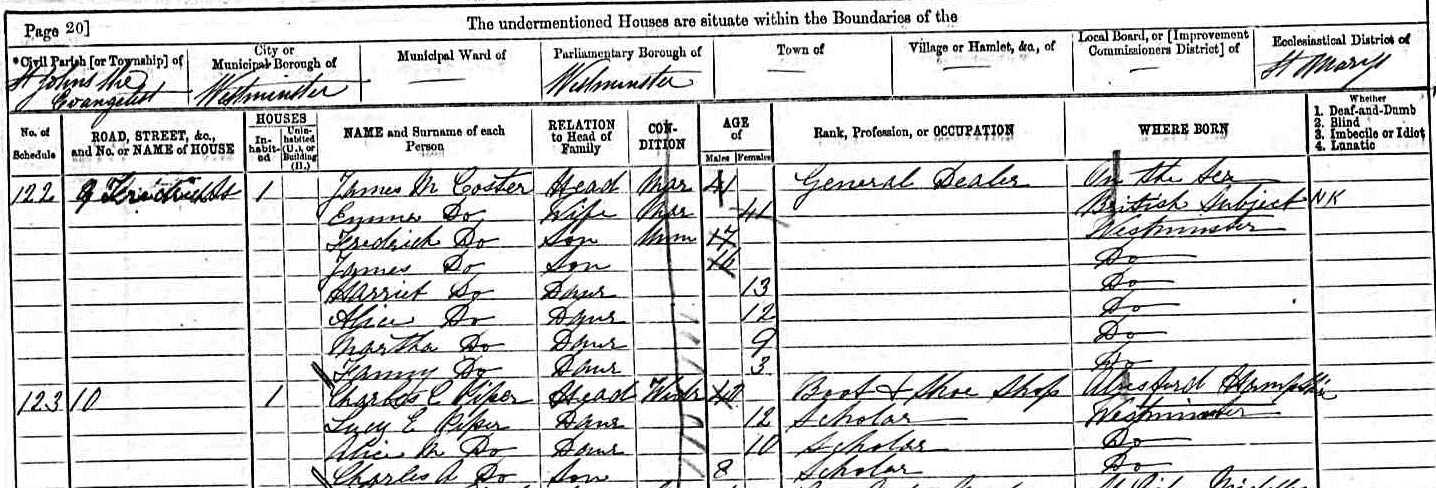 Page 20] The undermentioned Houses are situate within the Boundaries of the
*Civil Parish [or Township] of City or Municipal Borough of Municipal Ward of Parliamentary Borough of Town of Village or Hamlet, &c., of Local Board, or [Improvement Commissioners District] of Ecclesiastical District of
St Johns the Evangelist Westminster — Westminster — — — St Marys
No. of Schedule ROAD, STREET, &c., and No. or NAME of HOUSE HOUSES Inhabited Uninhabited (U.), or Building (B.) NAME and Surname of each Person RELATION to Head of Family CONDITION AGE of Males Females Rank, Profession, or OCCUPATION WHERE BORN Whether 1. Deaf-and-Dumb 2. Blind 3. Imbecile or Idiot 4. Lunatic
122 1 James M Coster Head Mar 41 General Dealer On the Sea
Emma Do Wife Mar 41 British Subject NK
Fredrick Do Son Unm 17 Westminster
James Do Son 16 Do
Harriet Do Daur 13 Do
Alice Do Daur 12 Do
Martha Do Daur 9 Do
Fanny Do Daur 3 Do
123 10 1 Charles E Piper Head Widr 40 Boot & Shoe Shop Alresford Hampshire
Lucy E Piper Daur 12 Scholar Westminster
Alice M Do Daur 10 Scholar Do
Charles A Do Son 8 Scholar Do